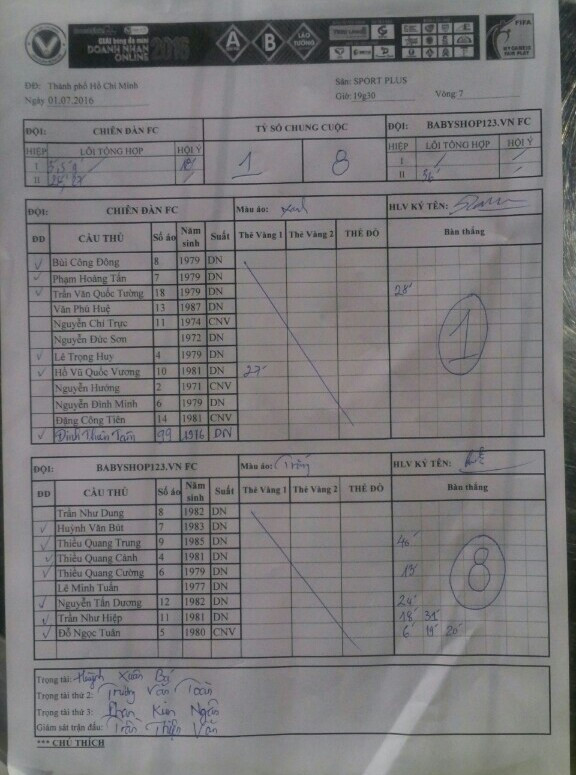 GIẢI bóng đá mini
DOANH NHÂN 2016
ONLINE
A B LÁO TƯỚNG
FIFA
MY GAME IS FAIR PLAY
ĐĐ: Thành phố Hồ Chí Minh Sân: SPORT PLUS
Ngày 01.07.2016 Giờ: 19g30 Vòng: 7
ĐỘI: CHIẾN ĐÀN FC TỶ SỐ CHUNG CUỘC ĐỘI: BABYSHOP123.VN FC
HIỆP LỖI TỔNG HỢP HỘI Ý 1 8 HIỆP LỖI TỔNG HỢP HỘI Ý
I I
II II 56'
ĐỘI: CHIẾN ĐÀN FC Màu áo: Xanh HLV KÝ TÊN:
ĐD CẦU THỦ Số áo Năm sinh Suất Thẻ Vàng 1 Thẻ Vàng 2 THẺ ĐỎ Bàn thắng
Bùi Công Đông 8 1979 DN
Phạm Hoàng Tấn 7 1979 DN
Trần Văn Quốc Tường 18 1979 DN 28'
Văn Phú Huệ 13 1987 DN
Nguyễn Chí Trực 11 1974 CNV
Nguyễn Đức Sơn 1972 DN
Lê Trọng Huy 4 1979 DN
Hồ Vũ Quốc Vương 10 1981 DN 27'
Nguyễn Hướng 2 1971 CNV
Nguyễn Đình Minh 6 1979 DN
Đặng Công Tiên 14 1981 CNV
Đinh Thiên Tâm 99 1976 DN
1
ĐỘI: BABYSHOP123.VN FC Màu áo: Trắng HLV KÝ TÊN:
ĐD CẦU THỦ Số áo Năm sinh Suất Thẻ Vàng 1 Thẻ Vàng 2 THẺ ĐỎ Bàn thắng
Trần Như Dung 8 1982 DN
Huỳnh Văn Bút 7 1983 DN
Thiều Quang Trung 9 1985 DN 40'
Thiều Quang Cảnh 4 1981 DN
Thiều Quang Cường 6 1979 DN 13'
Lê Minh Tuấn 1977 DN
Nguyễn Tấn Dương 12 1982 DN 24'
Trần Như Hiệp 11 1981 DN 18' 31'
Đỗ Ngọc Tuân 5 1980 CNV 6' 19' 20'
8
Trọng tài: Huỳnh Xuân
Trọng tài thứ 2: Trương Văn Toàn
Trọng tài thứ 3: Phan Kim Ngân
Giám sát trận đấu: Trần Thiện Văn
*** CHÚ THÍCH